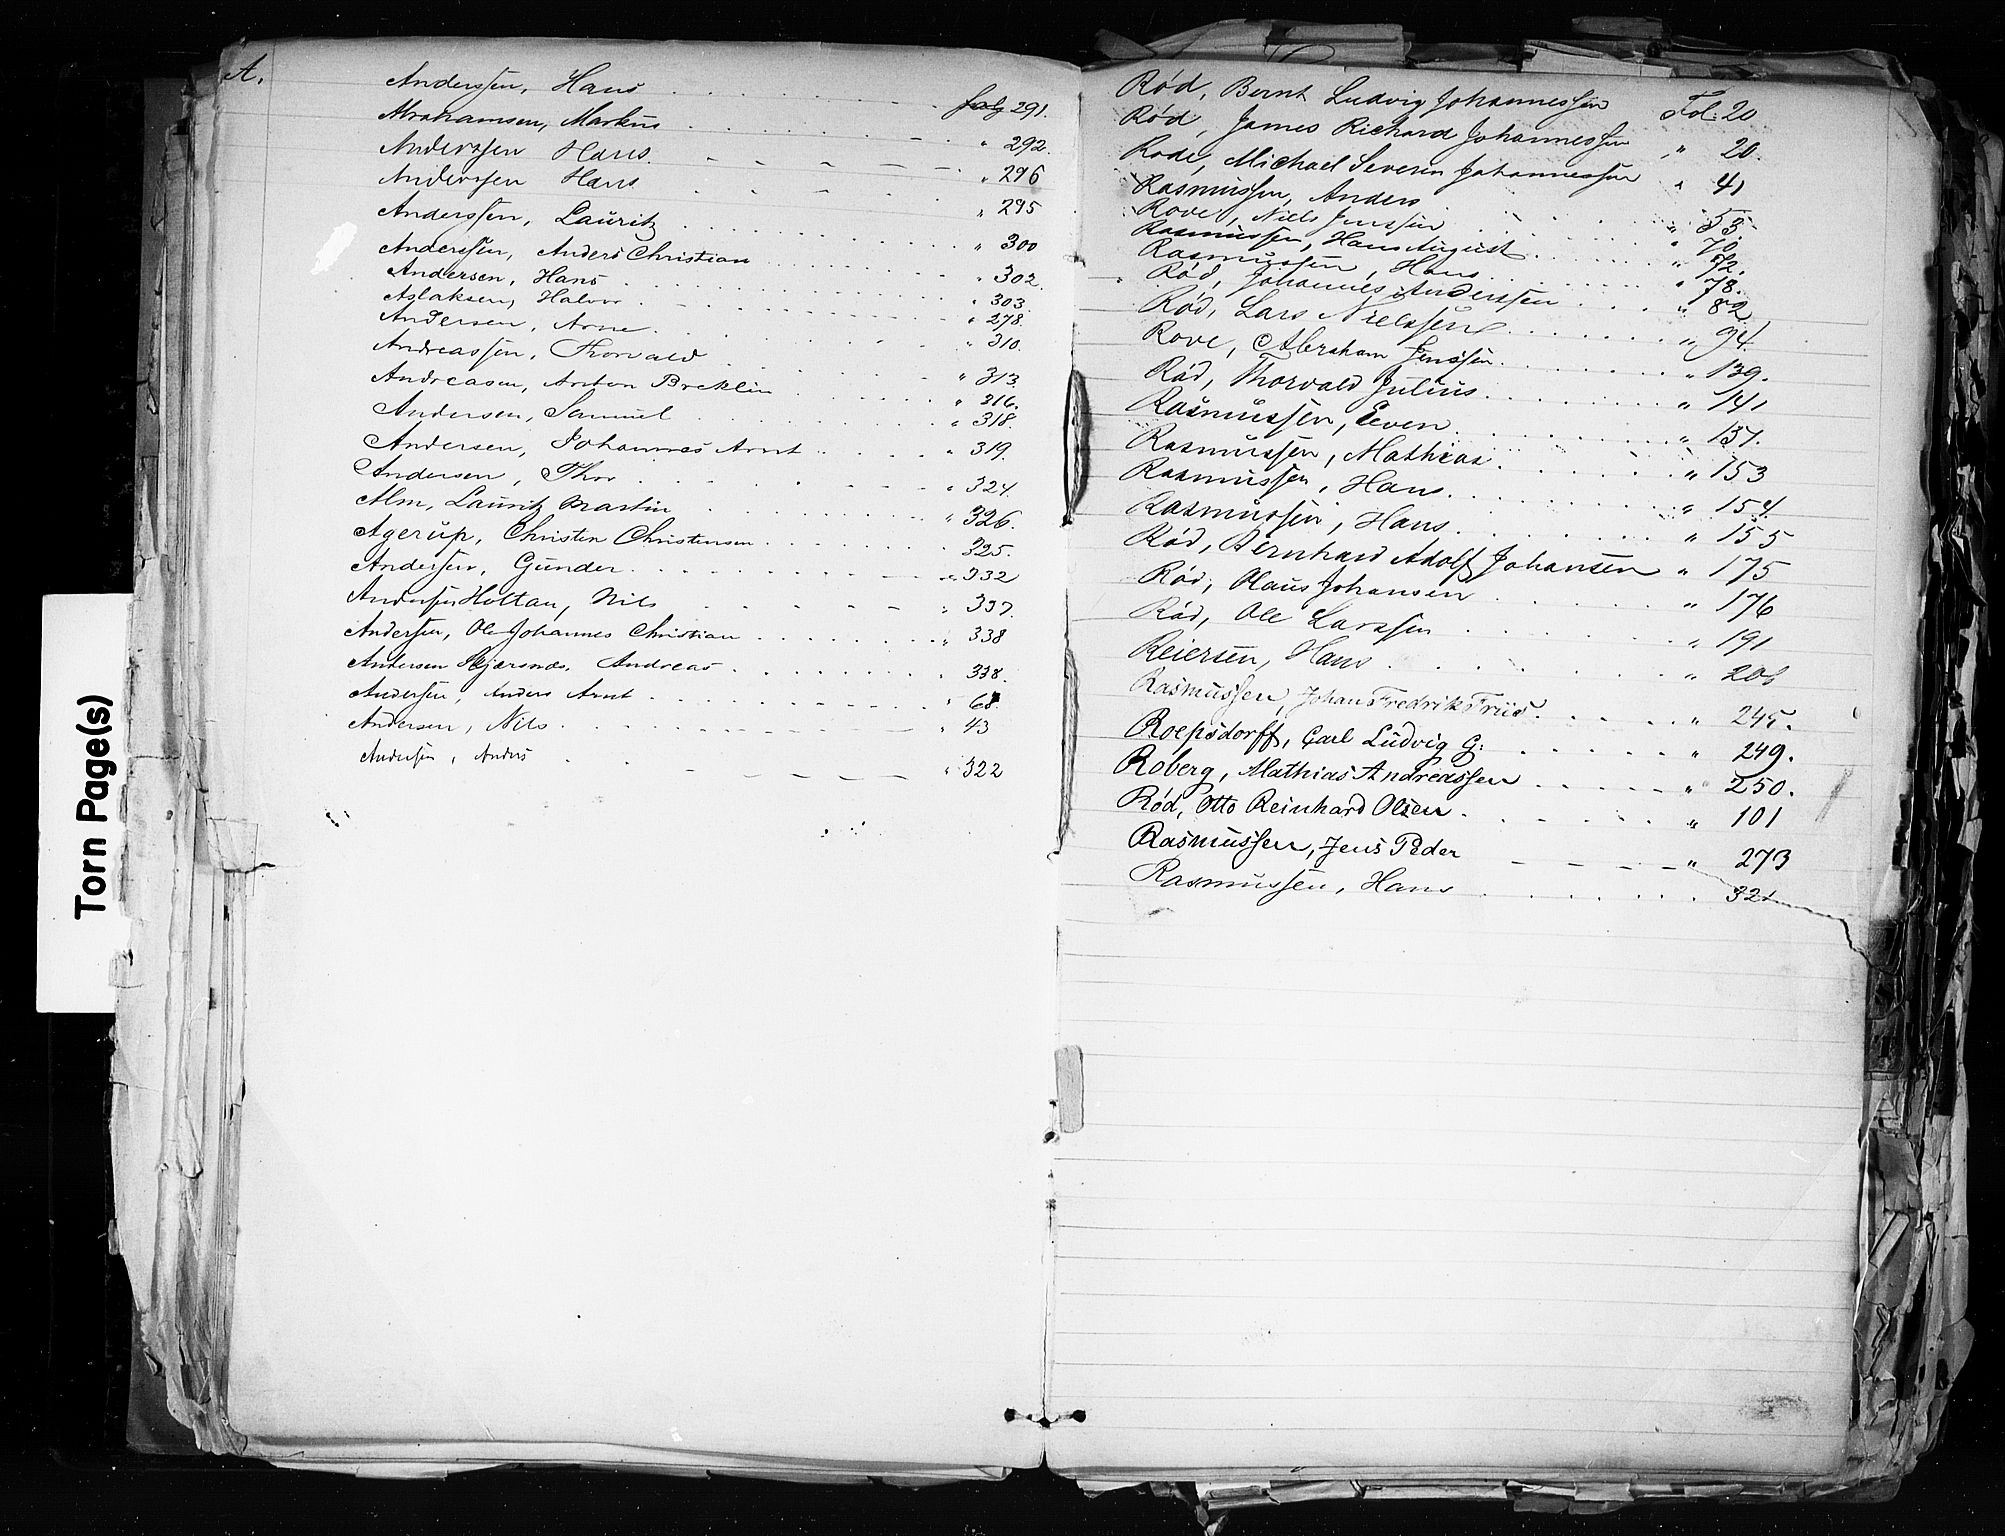 Torn Page(s)
A.
Anderssen, Hans . . . . . . . . 291.
Abrahamsen, Markus . . . . . . . „ 292.
Anderssen Hans. - - - - - „ 296
Anderssen Hans - - - - - „ 295
Anderssen, Lauritz . . . . . . . „ 300
Anderssen, Anders Christian . . . . . „ 302.
Andersen, Hans . . . . . . . . „ 303
Aslaksen, Halvor . . . . . . . „ 278.
Andersen, Arne . . . . . . . . „ 310.
Andreassen, Thorvald . . . . . . . „ 313
Andreasen, Anton Breklin . . . . . „ 316.
Andersen, Samuel . . . . . . . „ 318.
Andersen, Johannes Arnt . . . . . „ 319.
Andersen, Thor . . . . . . . . „ 324.
Alm, Lauritz Martin . . . . . . „ 326.
Agerup, Christen Christensen . . . . . 325.
Anderssen, Gunder . . . . . . . „ 332
Anderssen Holtan, Nils . . . . . . „ 337.
Anderssen, Ole Johannes Christian . . . . . „ 338
Andersen Andreas . . . . . . „ 338.
Anderssen, Anders Arnt . . . . . . „ 68
Andersen, Nils . . . . . . . . „ 43
Anderssen, Anders . . - - - - „ 322
Rød, Bernt Ludvig Johannessen Fol: 20
Rød, James Richard Johannessen „ 20.
Rode, Michael Severin Johannessen „ 41
Rasmussen, Anders . . . . . . „ 53.
Rove, Niels Jenssen . . . . . . „ 70.
Rasmussen, Hans August . . . . . „ 72.
Rasmussen, Hans . . . . . . „ 78.
Rød, Johannes Anderssen . . . . „ 82
Rød, Lars Nielssen . . . . . . „ 94.
Rove, Abraham Jenssen. . . . . . „ 139.
Rød, Thorvald Julius . . . . . . „ 141
Rasmussen, Even . . . . . . . „ 137.
Rasmussen, Mathias. . . . . . . „ 153
Rasmussen, Hans. . . . . . . . „ 154
Rasmussen, Hans . . . . . . . „ 155
Rød, Bernhard Adolf Johansen „ 175
Rød, Olaus Johansen . . . . . . „ 176
Rød, Ole Larssen . . . . . . „ 191
Reiersen, Hans . . . . . . . „ 206
Rasmussen, Johan Fredrik Friis . . . . . „ 245.
Roepsdorff, Carl Ludvig G: . . . . . „ 249.
Roberg, Mathias Andreassen . . . . . „ 250.
Rød, Otto Reinhard Olsen . . . . . „ 101
Rasmussen, Jens Peder - - - - „ 273
Rasmussen, Hans . . . . . . . 321